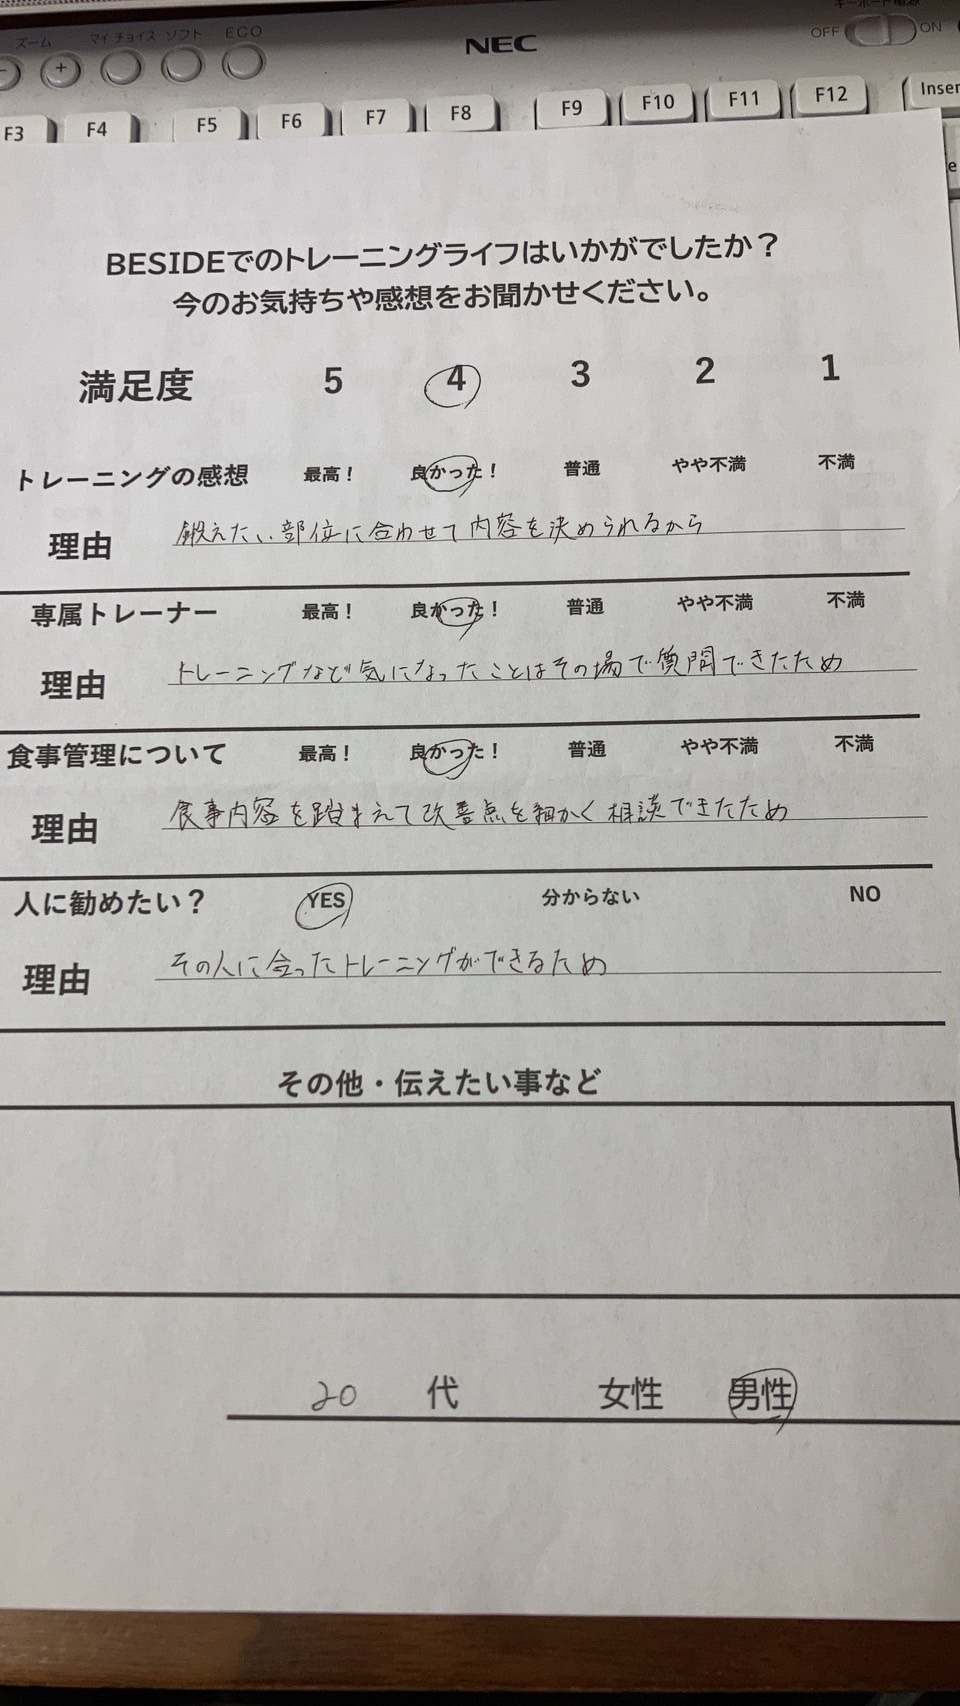 ズーム マイ チョイス ソフト ECO NEC キーボード電源 OFF ON
F3 F4 F5 F6 F7 F8 F9 F10 F11 F12 Inser
BESIDEでのトレーニングライフはいかがでしたか？
今のお気持ちや感想をお聞かせください。
満足度 5 4 3 2 1
トレーニングの感想 最高！ 良かった！ 普通 やや不満 不満
理由 鍛えたい部位に合わせて内容を決められるから
専属トレーナー 最高！ 良かった！ 普通 やや不満 不満
理由 トレーニングなど気になったことはその場で質問できたため
食事管理について 最高！ 良かった！ 普通 やや不満 不満
理由 食事内容を踏まえて改善点を細かく相談できたため
人に勧めたい？ YES 分からない NO
理由 その人に合ったトレーニングができるため
その他・伝えたい事など
20 代 女性 男性